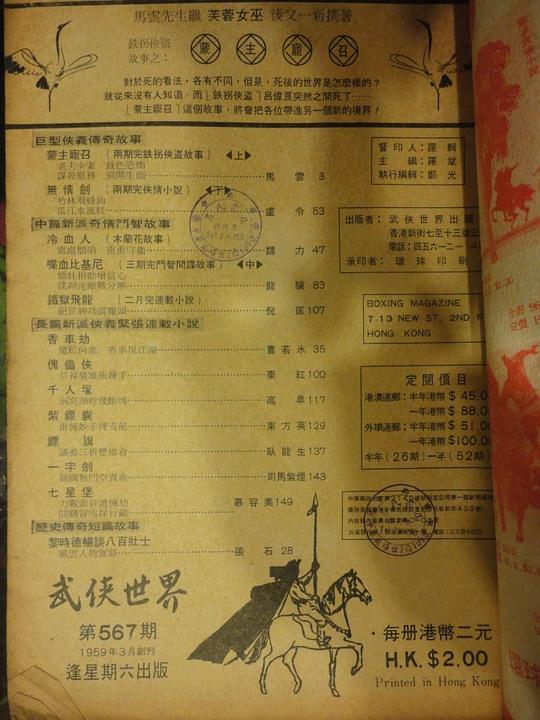 馬雲先生繼 芙蓉女巫 後又一新撰著
鉄拐俠盜
故事之：
蒙 主 寵 召
對於死的看法，各有不同，但是，死後的世界是怎麼樣的？
就從來沒有人知道，而「鉄拐俠盜」呂偉良突然之間死了……
「蒙主寵召」這個故事，將會把各位帶進另一個新的境界！
巨型俠義傳奇故事
蒙主寵召（兩期完鉄拐俠盜故事）◀上▶
謀殺服務 別開生面 馬雲 3
無情劍（兩期完俠情小說）◀下▶
盧令 53
中篇新派奇情鬥智故事
冷血人（木蘭花故事）
魏力 47
喋血比基尼（三期完鬥智間諜故事）◀中▶
龍驤 83
鐵獄飛龍（二月完連載小說）
倪匡 107
長篇新派俠義緊張連載小說
香車劫
曹若氷 35
傀儡俠
秦紅 100
千人塚
高臯 117
紫鏢囊
東方英 129
鏢旗
臥龍生 137
一字劍
司馬紫煙 143
七星堡
慕容美 149
歷史傳奇短篇故事
黎時德暢談八百壯士
風雲人物實錄 張石 28
武俠世界
第567期
1959年3月創刊
逢星期六出版
督印人：羅輯
主編：羅斌
執行編輯：鄭光
出版者：武俠世界出版
香港新街七至十三號
電話：四五六一二一
承印者：環球印刷
BOXING MAGAZINE
7-13 NEW ST. 2ND F
HONG KONG
定閱價目
港澳連郵：半年港幣 $ 45.0
一年港幣 $ 88.0
外埠連郵：半年港幣 $ 51.0
一年港幣 $100.0
半年（26期）一年（52期）
·每册港幣二元
H.K. $2.00
Printed in Hong Kong